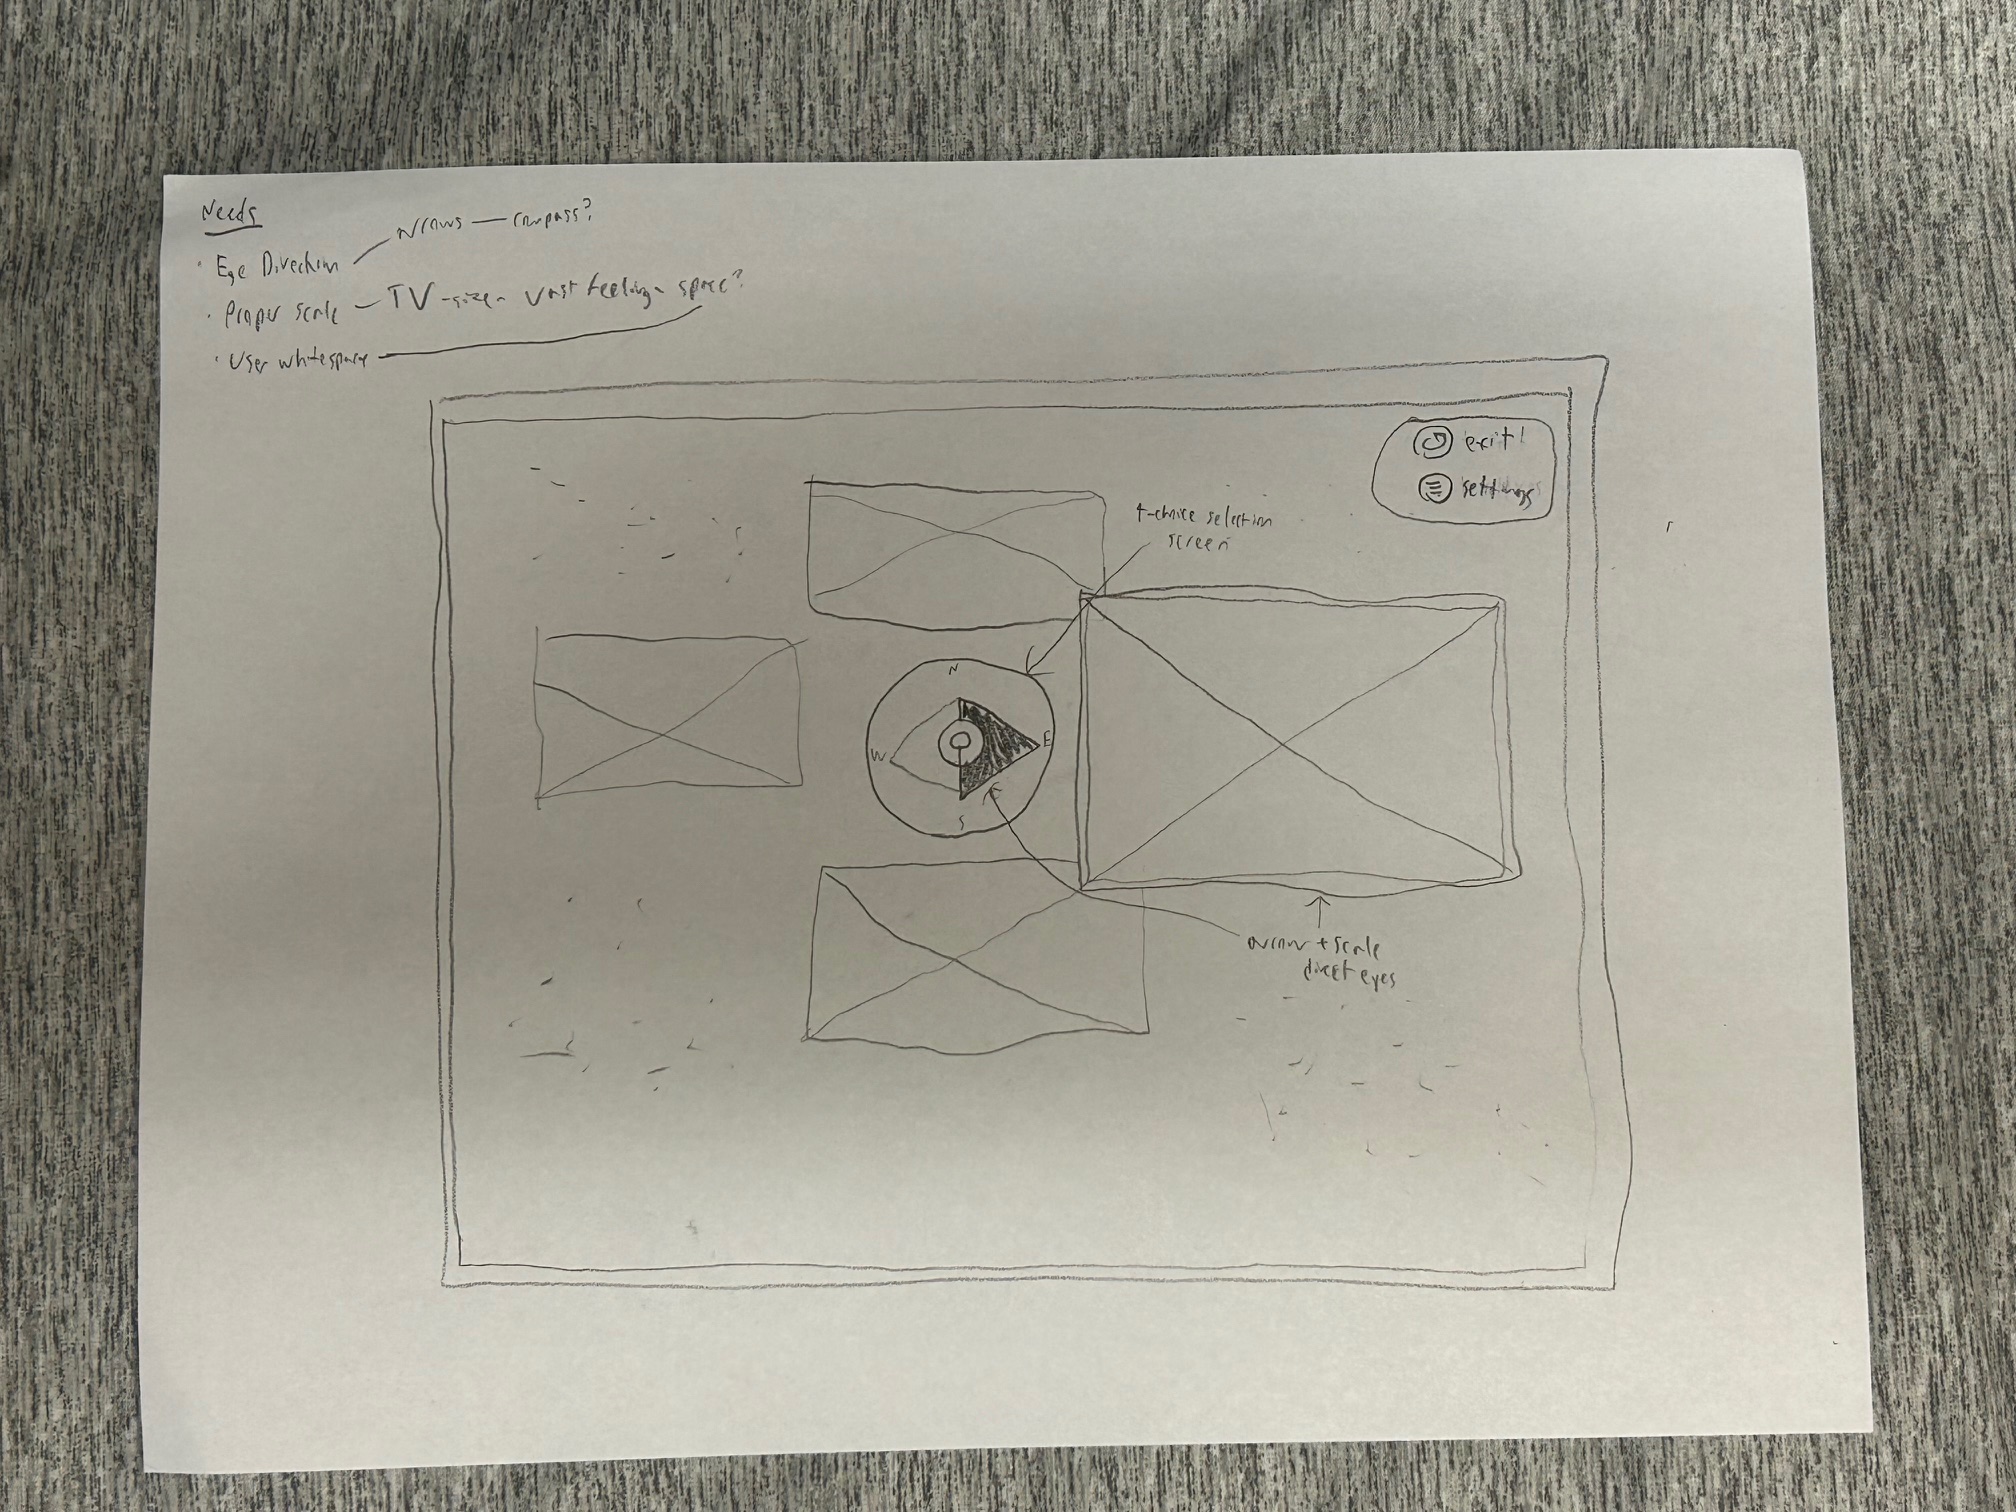 Needs
Arrows — compass?
· Eye Direction
· Proper scale — TV-size - vast feeling - space?
· User whitespace
exit!
settings
4-choice selection
screen
N
W
E
S
arrow + scale
direct eyes